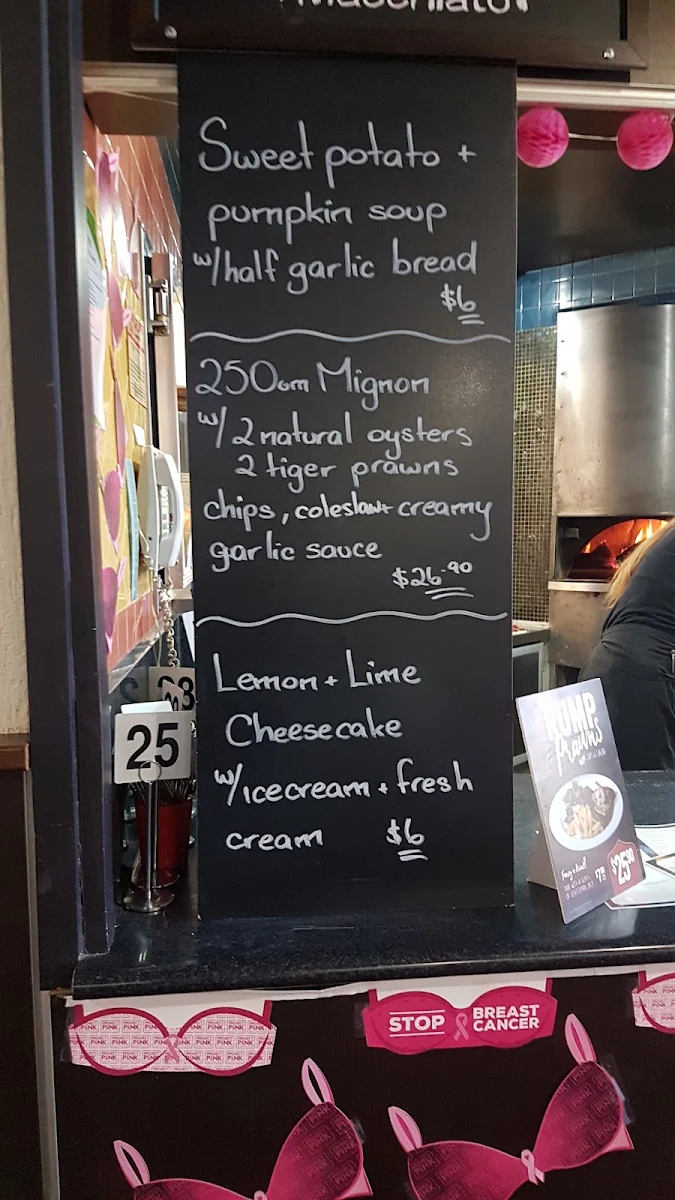 Macchiato
Sweet potato +
pumpkin soup
w/half garlic bread
$6
250gm Mignon
w/2 natural oysters
2 tiger prawns
chips, coleslaw + creamy
garlic sauce
$26.90
Lemon + Lime
Cheesecake
w/icecream + fresh
cream $6
25
RUMP
Prawns
$25.90
STOP BREAST
CANCER